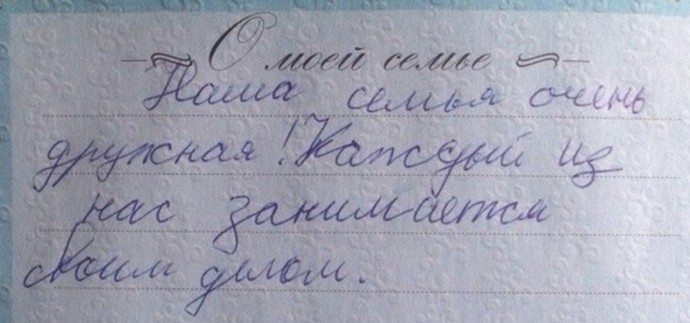 О моей семье
Наша семья очень
дружная! Каждый из
нас занимается
своим делом.